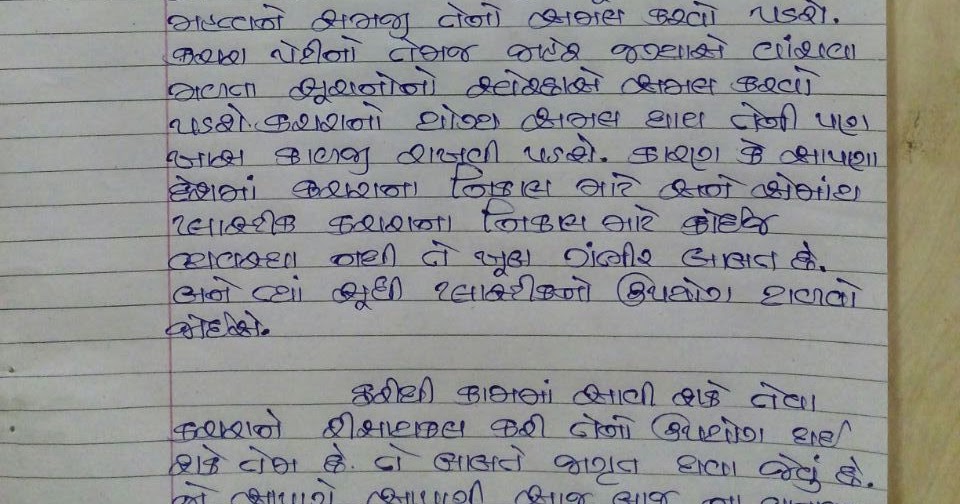 મહત્વને સમજી તેનો અમલ કરવો પડશે.
કચરા પેટીનો તેમજ જાહેર જગ્યાએ
મળતા સૂચનોનો સ્વૈચ્છિએ અમલ કરવો
પડશે. કચરાનો યોગ્ય અમલ થાય તેની પણ
ખાસ કાળજી રાખવી પડશે. કારણ કે આપણા
દેશમાં કચરાના નિકાલ માટે અને એમાંય
પ્લાસ્ટીક કચરાના નિકાલ માટે કોઈજ
વ્યવસ્થા નથી તે ખૂબ ગંભીર બાબત છે.
અને ત્યાં સૂધી પ્લાસ્ટીકનો ઉપયોગ ટાળવો
જોઈએ.
ફરીથી કામમાં આવી શકે તેવા
કચરાને રીસાયકલ કરી તેનો ઉપયોગ થઈ
શકે તેમ છે. તે બાબતે જાગૃત થવા જેવું છે.
જો આપણે આપણી આજ